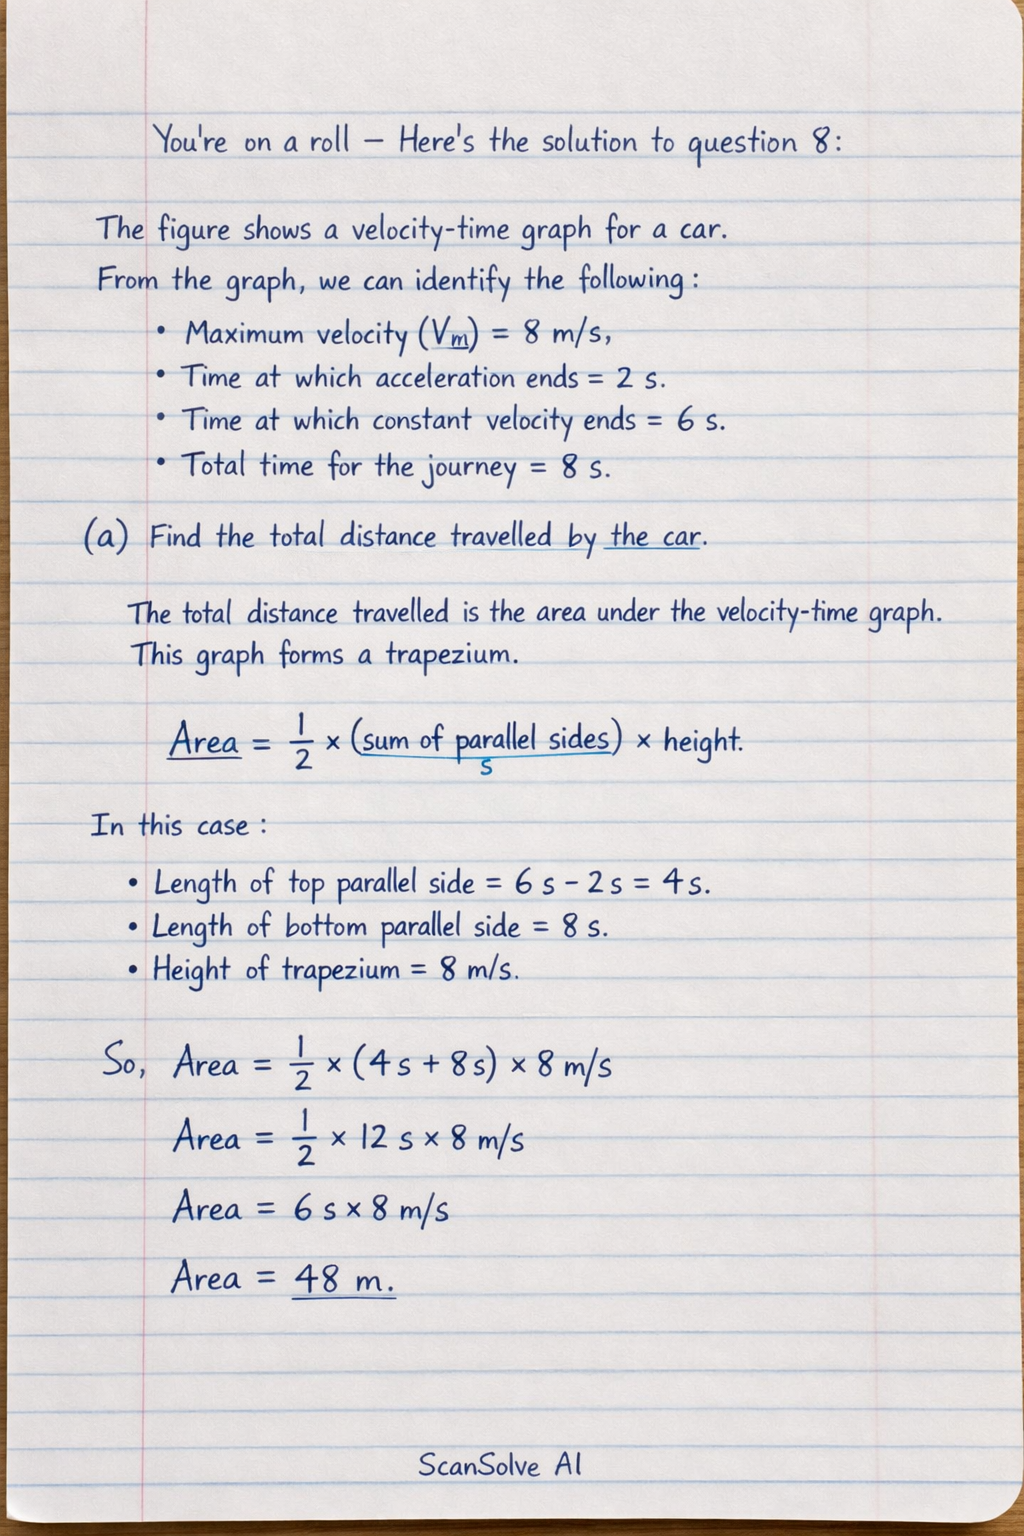 You're on a roll – Here's the solution to question 8:
The figure shows a velocity-time graph for a car.
From the graph, we can identify the following:
• Maximum velocity (Vm) = 8 m/s,
• Time at which acceleration ends = 2 s.
• Time at which constant velocity ends = 6 s.
• Total time for the journey = 8 s.
(a) Find the total distance travelled by the car.
The total distance travelled is the area under the velocity-time graph.
This graph forms a trapezium.
Area = 1/2 × (sum of parallel sides) × height.
s
In this case:
• Length of top parallel side = 6 s - 2 s = 4 s.
• Length of bottom parallel side = 8 s.
• Height of trapezium = 8 m/s.
So, Area = 1/2 × (4 s + 8 s) × 8 m/s
Area = 1/2 × 12 s × 8 m/s
Area = 6 s × 8 m/s
Area = 48 m.
ScanSolve AI